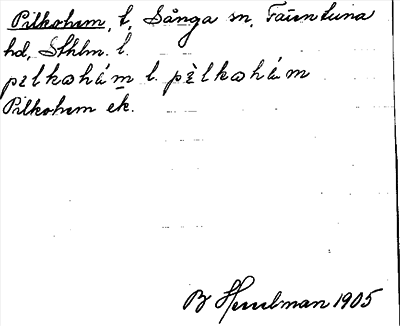 Pilkohem, t, Sånga sn, Färentuna
hd, Sthlm. l.
pìlkωhám l. pèlkωhám
Pilkohem ek.
B Hesselman 1905